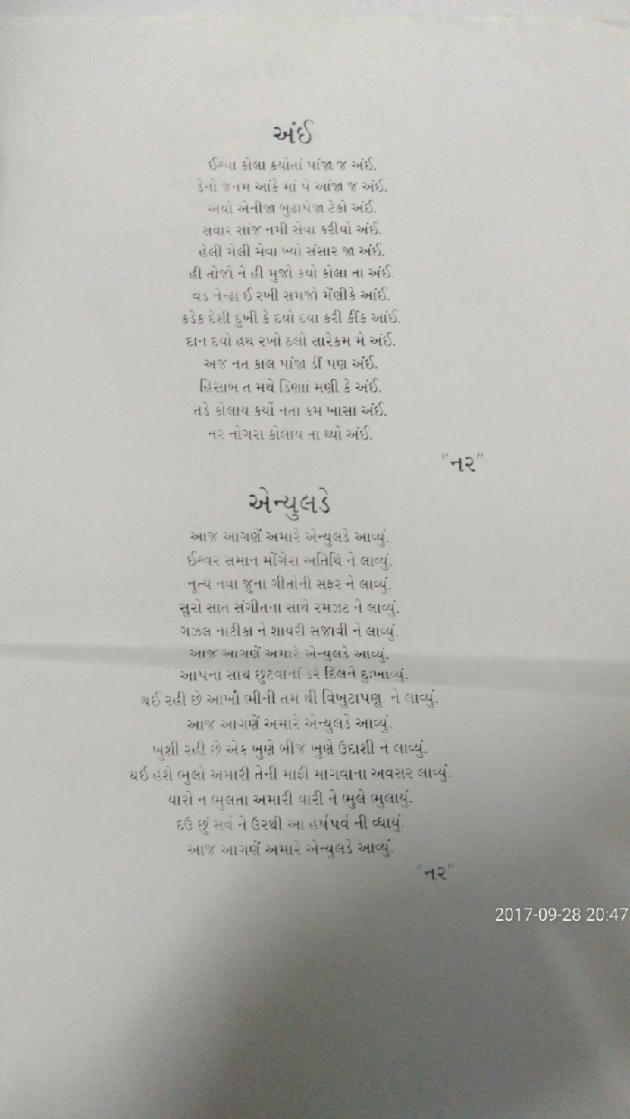 અંઈ
ઈશ્યા કોલા કયોતાં પાંજા જ અંઈ.
ડેનો જનમ આંકે માં પે આંજા જ અંઈ.
અયો એનીજા બુઢાપેજા ટેકો અંઈ.
સવાર સાંજ નમી સેવા કરીયો અંઈ.
હેલી મેલી મેવા ખ્યો સંસાર જા અંઈ.
હી તોજો ને હી મુજો કયો કોલા તા અંઈ.
વડ નેન્ઢા ઈ રખી સમજો મેંણીકે આંઈ.
કડેક દેશી દુખી કે દયો દયા કરી કીંક આંઈ.
દાન દયો હથ રખો ઠલો સારેકમ મે અંઈ.
અજ નત કાલ પાંજા ડીં પણ અંઈ.
હિસાબ ત મથે ડિણાં મણી કે અંઈ.
તડે કોલાય કર્યો નતા કમ ખાસા અંઈ.
નર નોગરા કોલાય તા થ્યો અંઈ.
"નર"
એન્યુલડે
આજ આગણેં અમારે એન્યુલડે આવ્યું.
ઈશ્વર સમાન મોંગેરા અતિથિ ને લાવ્યું.
નૃત્ય નવા જુના ગીતોની સફર ને લાવ્યું.
સુરો સાત સંગીતના સાથે રમઝટ ને લાવ્યું.
ગઝલ નાટીકા ને શાયરી સજાવી ને લાવ્યું.
આજ આગણેં અમારે એન્યુલડે આવ્યું.
આપના સાથ છુટવાનાં ડરે દિલને દુઃખાવ્યું.
થઈ રહી છે આખોં ભીની તમ થી વિખુટાપણુ ને લાવ્યું.
આજ આગણેં અમારે એન્યુલડે આવ્યું.
ખુશી રહી છે એક ખુણે બીજે ખુણે ઉદાશી ને લાવ્યું.
થઈ હશે ભુલો અમારી તેની માફી માગવાના અવસર લાવ્યું.
યારો ન ભુલતા અમારી યારી ને ભુલે ભુલાયું.
દઉ છું સર્વ ને ઉરથી આ હર્ષપર્વ ની વ્ધાયું.
આજ આગણેં અમારે એન્યુલડે આવ્યું.
"નર"
2017-09-28 20:47